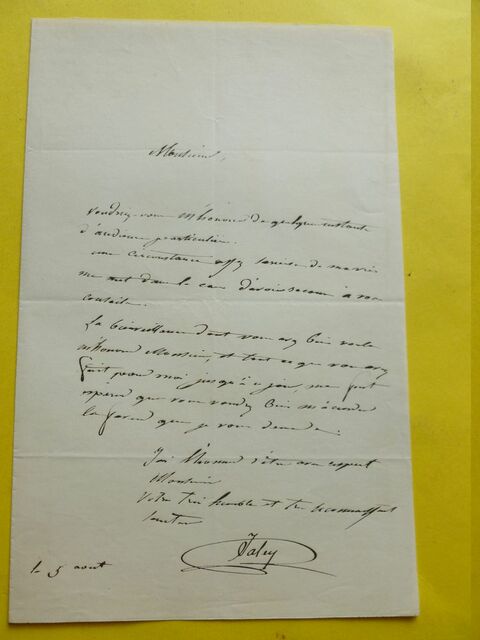 Monsieur,
voudrez-vous m'honorer de quelques instants
d'audience particulière.
une circonstance assez de
me met dans le cas d'avoir recours à vos
conseils.
La bienveillance dont vous avez bien voulu
m'honorer Monsieur, et tout ce que vous avez
fait pour moi jusqu'à ce jour, me fait
espérer que vous voudrez bien m'accorder
la faveur que je vous demande.
J'ai l'honneur d'être avec respect
Monsieur
Votre très humble et très reconnaissant
serviteur
le 5 aout